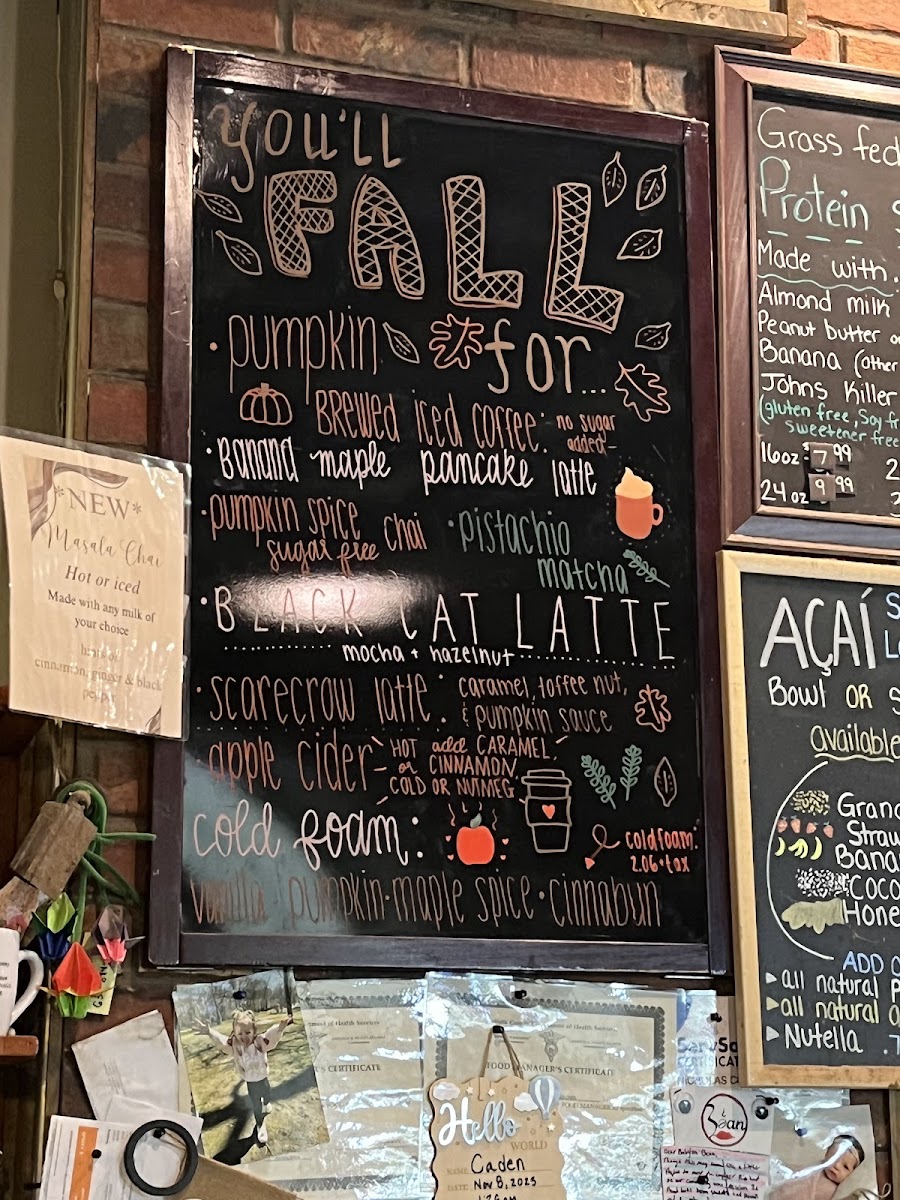 You'll
FALL
for...
• pumpkin
BREWED iced coffee: no sugar
added
• BANANA maple pancake latte
• pumpkin spice chai
sugar free
• pistachio
matcha
• BLACK CAT LATTE
mocha + hazelnut
• scarecrow latte: caramel, toffee nut,
& pumpkin sauce
apple cider - HOT add CARAMEL
or CINNAMON,
COLD OR NUTMEG
cold foam:
cold foam:
2.06 + tax
vanilla pumpkin • maple spice • cinnabun
*NEW*
Masala Chai
Hot or iced
Made with any milk of
your choice
hints of
cinnamon, ginger & black
pepper
Grass fed
Protein
Made with.
Almond milk
Peanut butter
Banana (other
Johns Killer
(gluten free, soy fr
sweetener free
16oz $7.99
24oz 9.99
AÇAÍ
Bowl OR
available
Straw
Bana
Coco
Hone
ADD
all natural
all natural
Nutella
FOOD MANAGER'S CERTIFICATE
'S CERTIFICATE
NICHOLAS
Hello
WORLD
NAME Caden
DATE Nov 8, 2023
Bean